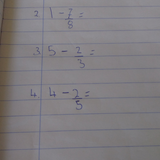 2. 1 - 2/8 =
3. 5 - 2/3 =
4. 4 - 2/5 =